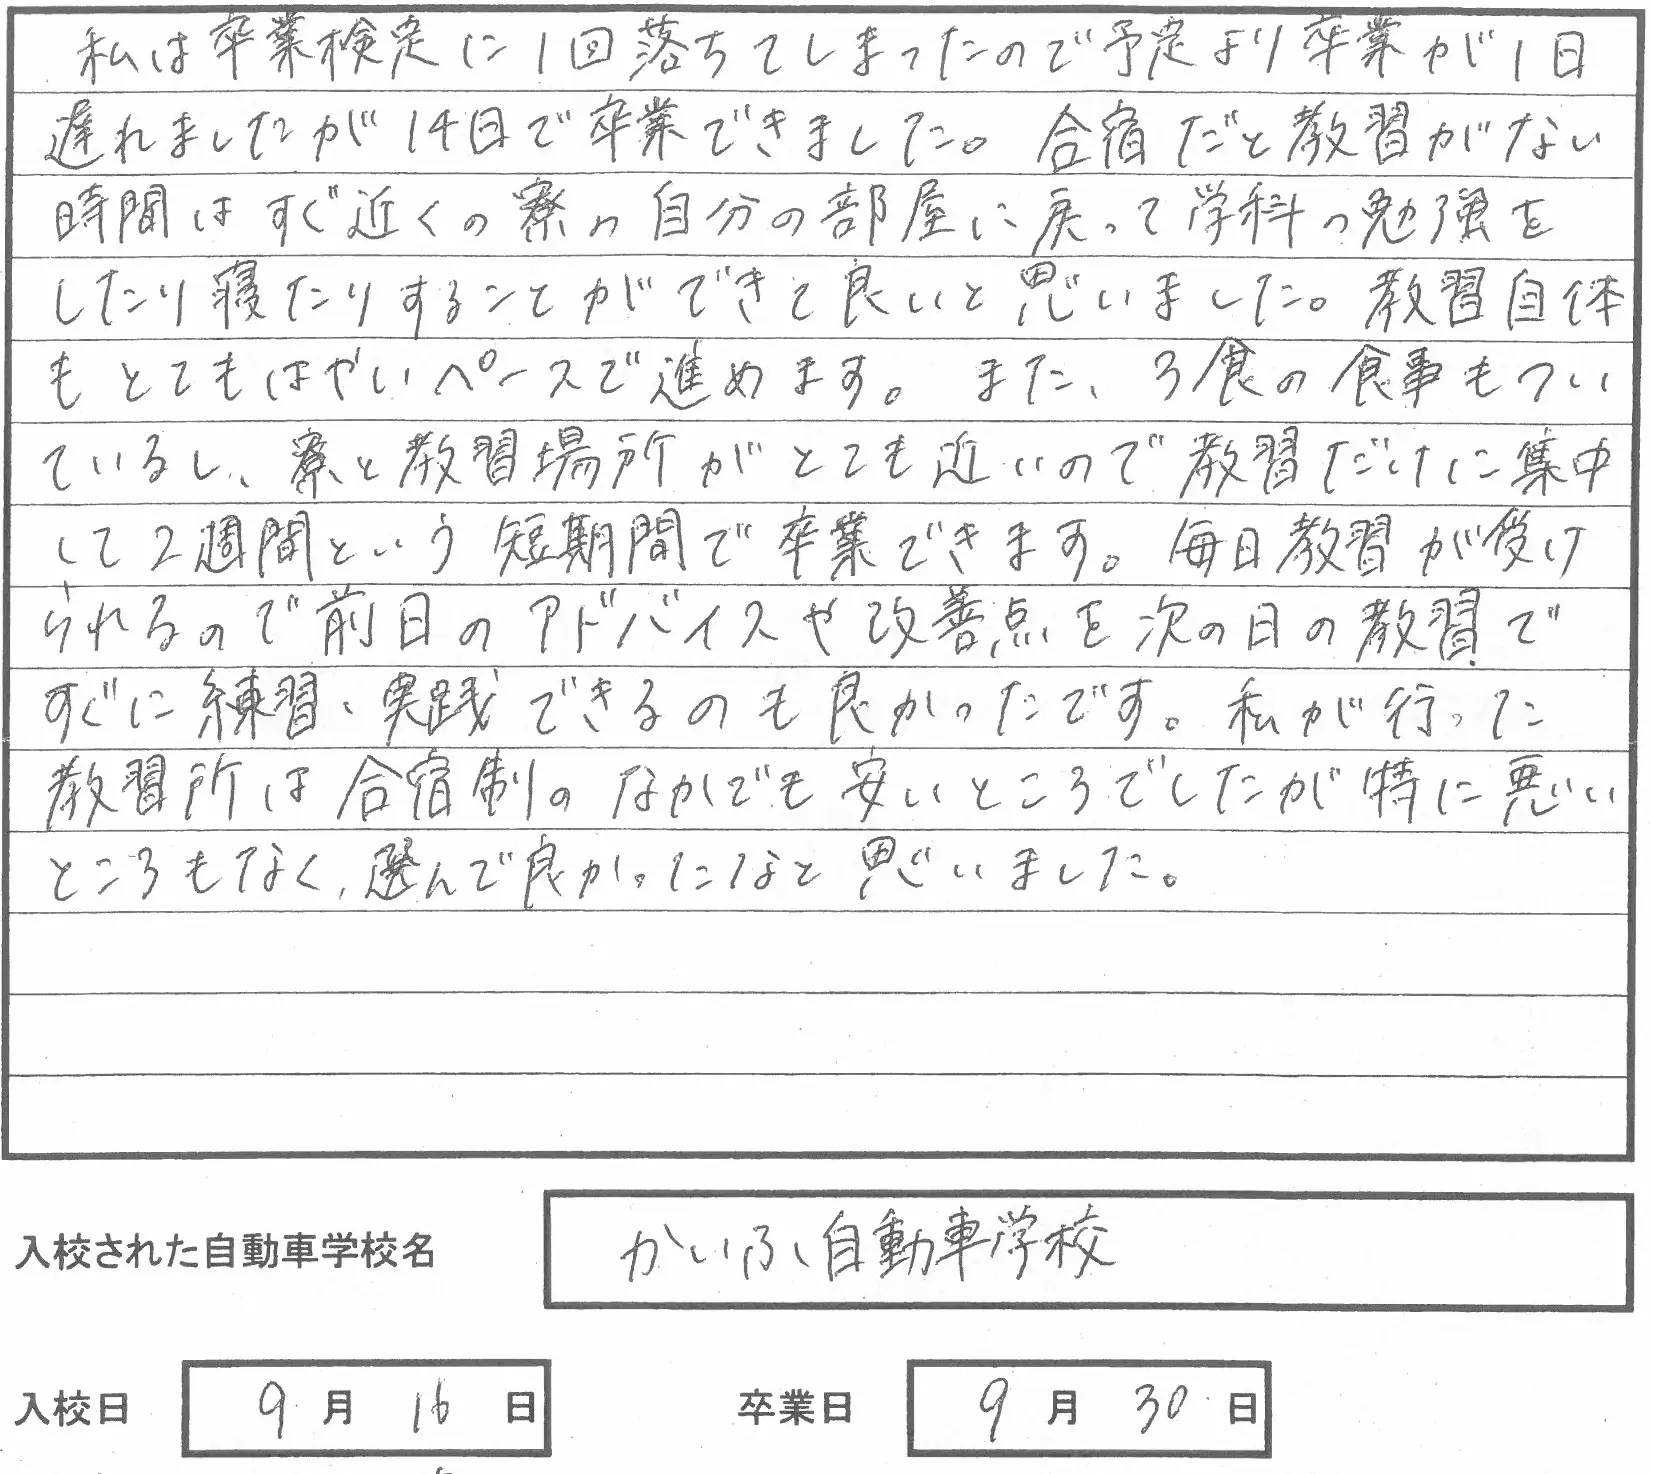 私は卒業検定に1回落ちてしまったので予定より卒業が1日
遅れましたが14日で卒業できました。合宿だと教習がない
時間はすぐ近くの寮の自分の部屋に戻って学科の勉強を
したり寝たりすることができて良いと思いました。教習自体
もとてもはやいペースで進めます。また、3食の食事もつい
ているし、寮と教習場所がとても近いので教習だけに集中
して2週間という短期間で卒業できます。毎日教習が受け
られるので前日のアドバイスや改善点を次の日の教習で
すぐに練習、実践できるのも良かったです。私が行った
教習所は合宿制のなかでも安いところでしたが特に悪い
ところもなく、選んで良かったなと思いました。
入校された自動車学校名 かいふ自動車学校
入校日 9月16日 卒業日 9月30日